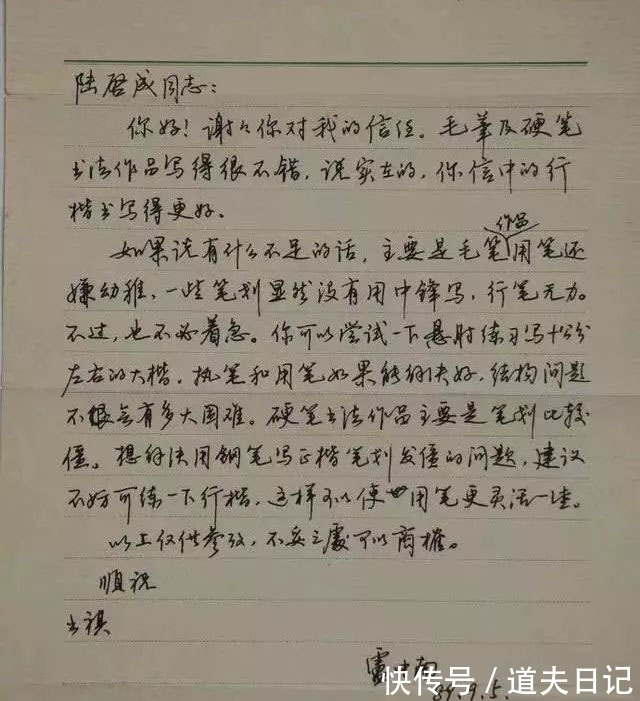 陆启成同志：
你好！谢々你对我的信任。毛筆及硬笔
书法作品写得很不错，说实在的，你信中的行
楷书写得更好。
作品
如果说有什么不足的话，主要是毛笔用笔还
嫌幼稚，一些笔划显然没有用中锋写，行笔无力。
不过，也不必着急。你可以尝试一下悬肘练习写十公分
左右的大楷。执笔和用笔如果能解决好，结构问题
不很会有多大困难。硬笔书法作品主要是笔划比较
僵。想解决用钢笔写正楷笔划发僵的问题，建议
不妨可练一下行楷，这样可以使用笔更灵活一些。
以上仅供参考，不妥之處可以商榷。
顺祝
书祺
雷
89.9.5.
快传号／道夫日记